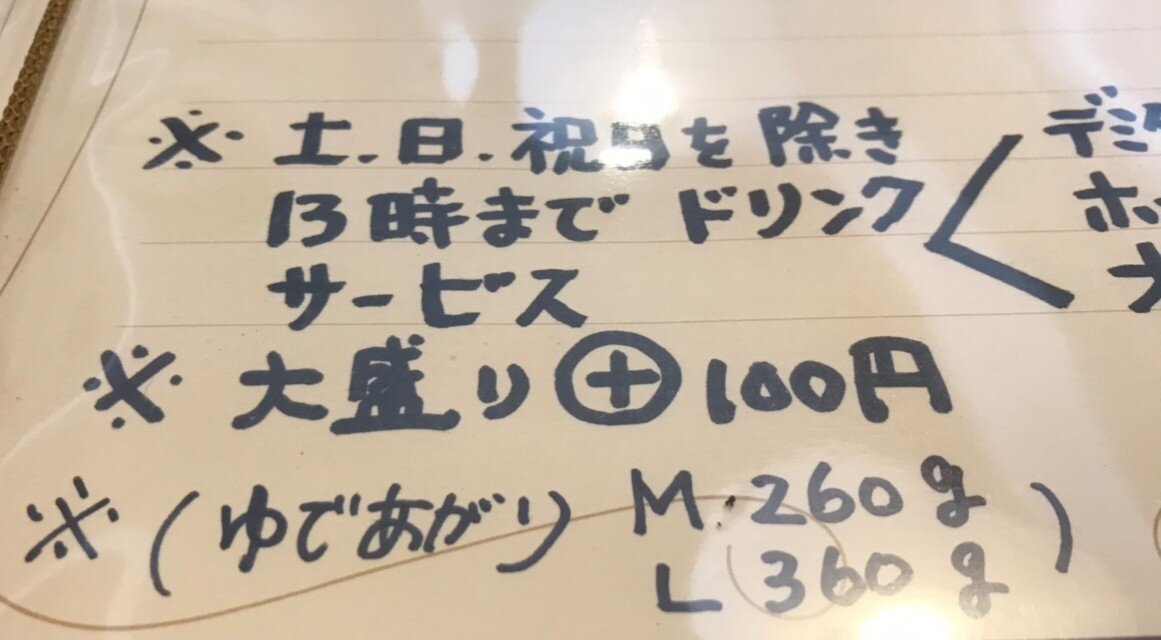 ※ 土.日.祝日を除き
13時まで ドリンク
サービス
デミタ
ホッ
※ 大盛り ⊕100円
※ (ゆであがり) M 260g
L 360g )